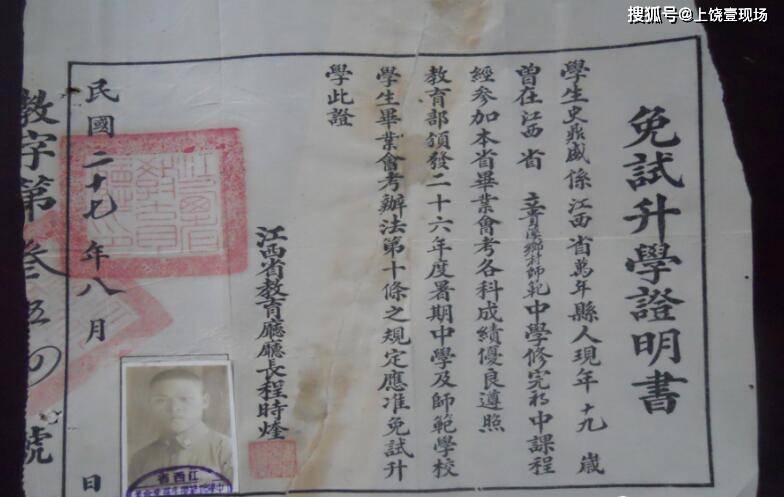 搜狐号@上饶壹现场
免試升學證明書
學生史鼎盛係江西省萬年縣人現年十九歲
曾在江西省立貴溪鄉村師範中學修完初中課程
經參加本省畢業會考各科成績優良遵照
教育部頒發二十六年度暑期中學及師範學校
學生畢業會考辦法第十條之規定應准免試升
學此證
江西省教育廳廳長程時煃
民國二十七年八月 日
教字第叁伍 號
江西省